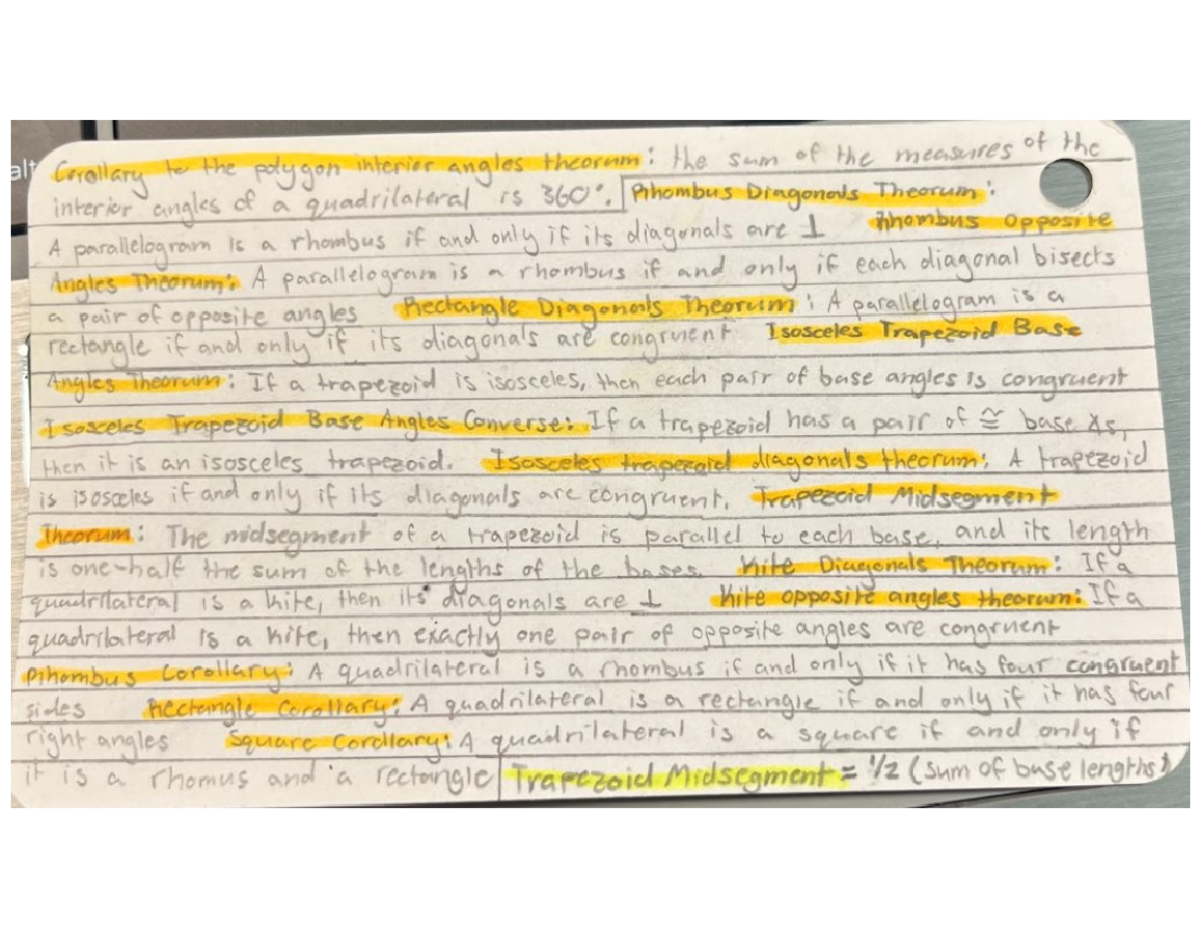 alt
Corollary to the polygon interior angles theorum: the sum of the measures of the
interior angles of a quadrilateral is 360°. Rhombus Diagonals Theorum:
A parallelogram is a rhombus if and only if its diagonals are ⊥ Rhombus Opposite
Angles Theorum: A parallelogram is a rhombus if and only if each diagonal bisects
a pair of opposite angles Rectangle Diagonals Theorum: A parallelogram is a
rectangle if and only if its diagonals are congruent Isosceles Trapezoid Base
Angles Theorum: If a trapezoid is isosceles, then each pair of base angles is congruent
Isosceles Trapezoid Base Angles Converse: If a trapezoid has a pair of ≅ base ∡s,
then it is an isosceles trapezoid. Isosceles trapezoid diagonals theorum: A trapezoid
is isosceles if and only if its diagonals are congruent. Trapezoid Midsegment
Theorum: The midsegment of a trapezoid is parallel to each base, and its length
is one-half the sum of the lengths of the bases Kite Diagonals Theorum: If a
quadrilateral is a kite, then its diagonals are ⊥ Kite opposite angles theorum: If a
quadrilateral is a kite, then exactly one pair of opposite angles are congruent
Rhombus Corollary: A quadrilateral is a rhombus if and only if it has four congruent
sides Rectangle Corollary: A quadrilateral is a rectangle if and only if it has four
right angles Square Corollary: A quadrilateral is a square if and only if
it is a rhomus and a rectangle Trapezoid Midsegment = 1/2 (sum of base lengths)